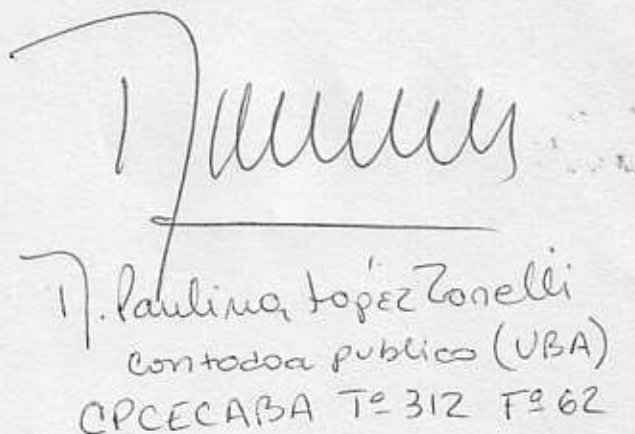 M. Paulina López Zonelli
Contadora publico (UBA)
CPCECABA Tº 312 Fº 62